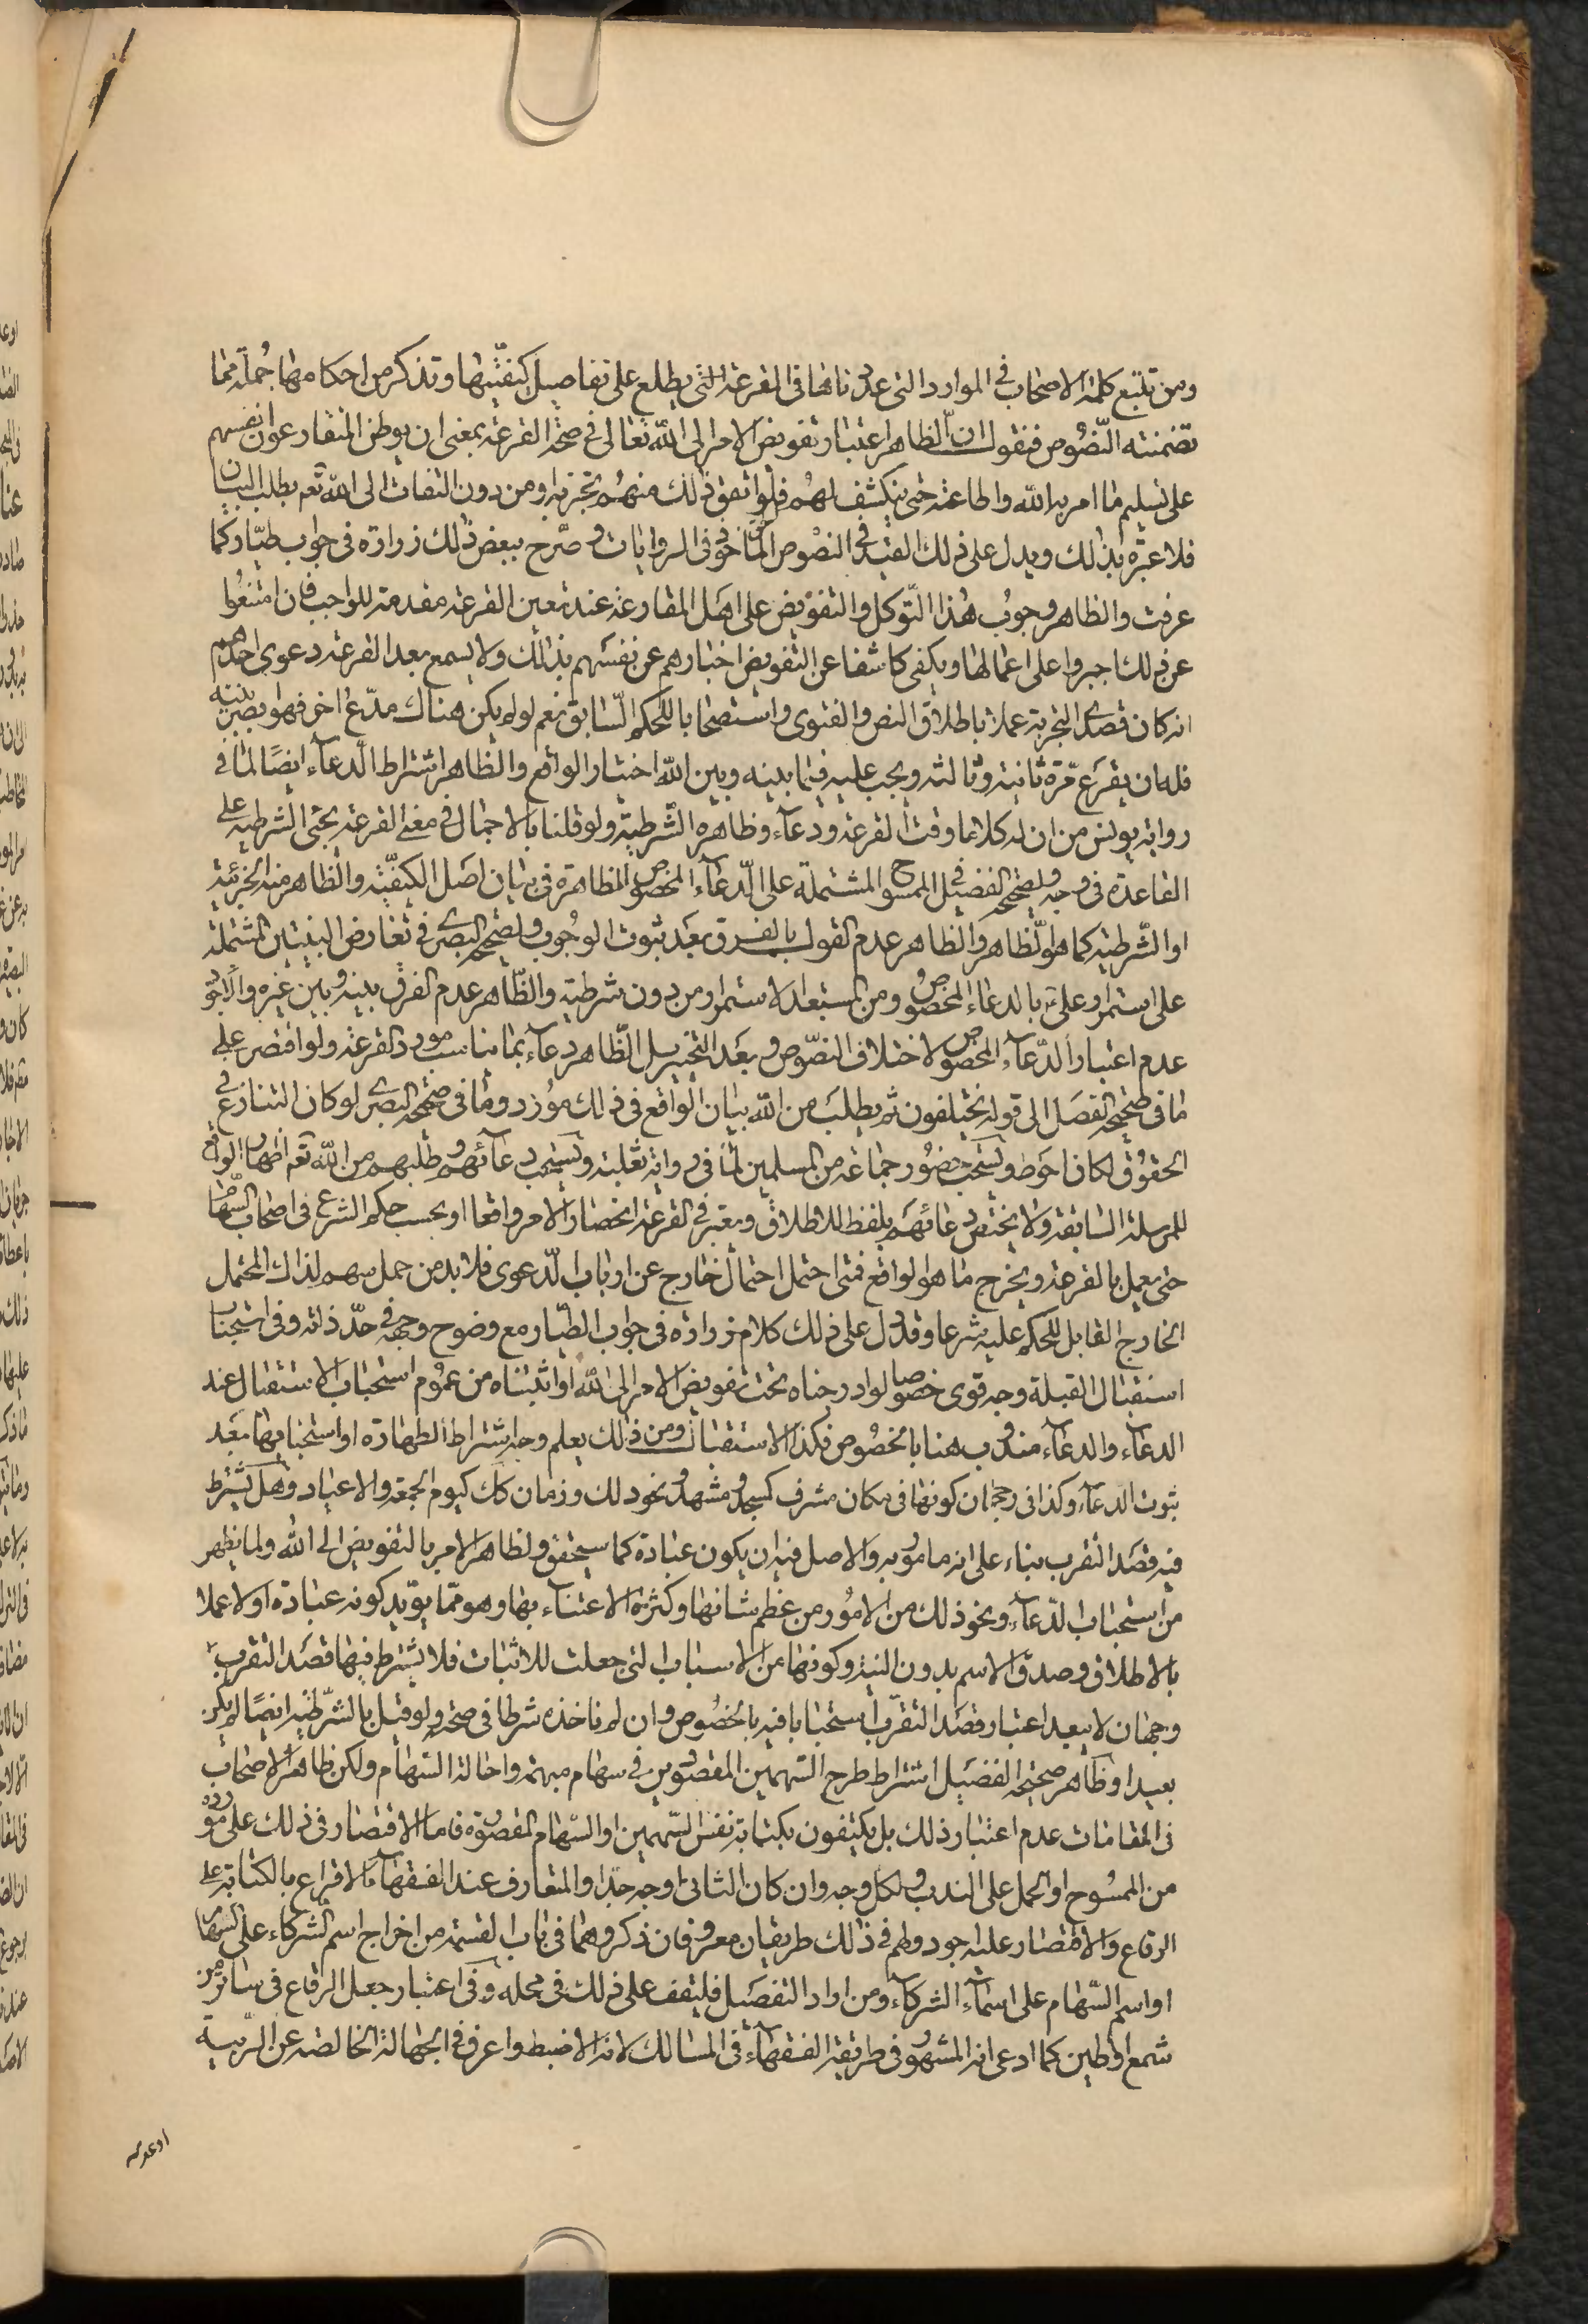 ومن تتبع كلمة الاصحاب في الموارد التي عددناها في القرعة التي يطلع على تفاصيل كيفيتها وتذكر من احكامها جملة مما
تضمنته النصوص فنقول ان الظاهر اعتبار تفويض الامر الى الله تعالى في صحة القرعة بمعنى ان يوطن المتقارعون انفسهم
على تسليم ما امر به الله واطاعته حتى ينكشف لهم فلو اتفق ذلك منهم تجربة او من دون التفات الى الله تعم بطلب البيان
فلا عبرة بذلك ويدل على ذلك القيد في النصوص المأخوذ في الروايات وصرح ببعض ذلك زرارة في جواب طيار كما
عرفت والظاهر وجوب هذا التوكل والتفويض على اهل المقارعة عند تعين القرعة مقدمة للواجب فان امتنعوا
عن ذلك اجبروا على اعمالها ويكفي كاشفا عن التفويض اخبارهم عن نفسهم بذلك ولا يسمع بعد القرعة دعوى احدهم
انه كان قصدي التجربة عملا باطلاق النص والفتوى واستصحابا للحكم السابق نعم لو لم يكن هناك مدع اخر فهو بصير بنيته
فله ان يقرع مرة ثانية وثالثة ويجب عليه فيما بينه وبين الله اختيار الواقع والظاهر اشتراط الدعاء ايضا لما في
رواية يونس من ان له كلاما وقت القرعة ودعاء وظاهره الشرطية ولو قلنا بالاجمال في معنى القرعة يجئ الشرطية على
القاعدة في وجه ولصحيح الفضيل في الممسوح المشتملة على الدعاء المخصوص الظاهرة في بيان اصل الكيفية والظاهر منه الجزئية
او الشرطية كما هو الظاهر والظاهر عدم القول بالفرق بعد ثبوت الوجوب ولصحيح البصري في تعارض البينتين المشتملة
على استمرار علي بالدعاء المخصوص ومن المستبعد الاستمرار من دون شرطية والظاهر عدم الفرق بينه وبين غيره والاقوى
عدم اعتبار الدعاء المخصوص لاختلاف النصوص وبعد التخيير بل الظاهر دعاء بما يناسب مورد القرعة ولو اقتصر على
ما في صحيح الفضل الى قوله يختلفون ثم يطلب من الله بيان الواقع في ذلك مورد وما في صحيح البصري لو كان التنازع في
الحقوق لكان احوط ويستحب حضور جماعة من المسلمين لما في رواية ثعلبة ويستحب دعائهم وطلبهم من الله تعم اظهار الواقع
للمرسلة السابقة ولا يختص دعائهم بلفظ للاطلاق ويعتبر في القرعة انحصار الامر واقعا او بحسب حكم الشرع في اصحاب السهام
حتى يعمل بالقرعة ويخرج ما هو الواقع فمتى احتمل احتمال خارج عن ارباب الدعوى فلا بد من جعل سهم لذلك المحتمل
الخارج القابل للحكم عليه شرعا وقد دل على ذلك كلام زرارة في جواب الطيار مع وضوح وجهه في حد ذاته وفي استحباب
استقبال القبلة وجه قوى خصوصا لو ادرجناه تحت تفويض الامر الى الله او اثبتناه من عموم استحباب الاستقبال عند
الدعاء والدعاء مندوب هنا بالخصوص فكذا الاستقبال ومن ذلك يعلم وجه اشتراط الطهارة او استحبابها بعد
ثبوت الدعاء وكذا في رجحان كونها في مكان مشرف كمسجد ومشهد ونحو ذلك وزمان كك كيوم الجمعة والاعياد وهل يشترط
فيه قصد التقرب بناء على انه مامور به والاصل فيه ان يكون عبادة كما سيحقق ولظاهر الامر بالتفويض الى الله ولما يظهر
من استحباب الدعاء ونحو ذلك من الامور من عظم شانها وكثرة الاعتناء بها وهو مما يؤيد كونه عبادة اولا عملا
بالاطلاق وصدق الاسم بدون النية وكونها من الاسباب التي جعلت للاثبات فلا يشترط فيها قصد التقرب
وجهان لا يبعد اعتبار قصد التقرب استحبابا فيه بالخصوص وان لم ناخذه شرطا في صحته ولو قيل بالشرطية ايضا لم يكن
بعيدا وظاهر صحيح الفضيل اشتراط طرح السهمين المقصودين في سهام مبهمة واحالة السهام ولكن ظاهر الاصحاب
في المقامات عدم اعتبار ذلك بل يكتفون بكتابة نفس السهمين او السهام المقصودة فاما الاقتصار في ذلك على مورده
من الممسوح او الحمل على الندب ولكل وجه وان كان الثاني اوجه جدا والمتعارف عند الفقهاء الاقراع بالكتابة على
الرقاع والاقتصار عليه اجود ولهم في ذلك طريقان معروفان ذكروهما في باب القسمة من اخراج اسم الشركاء على السهام
او اسم السهام على اسماء الشركاء ومن اراد التفصيل فليقف على ذلك في محله وفي اعتبار جعل الرقاع في ساتر من
شمع او طين كما ادعى انه المشهور في طريقة الفقهاء في المسالك لانه الاضبط واعرف في الجهالة الخالصة عن الريبة
او عدمه